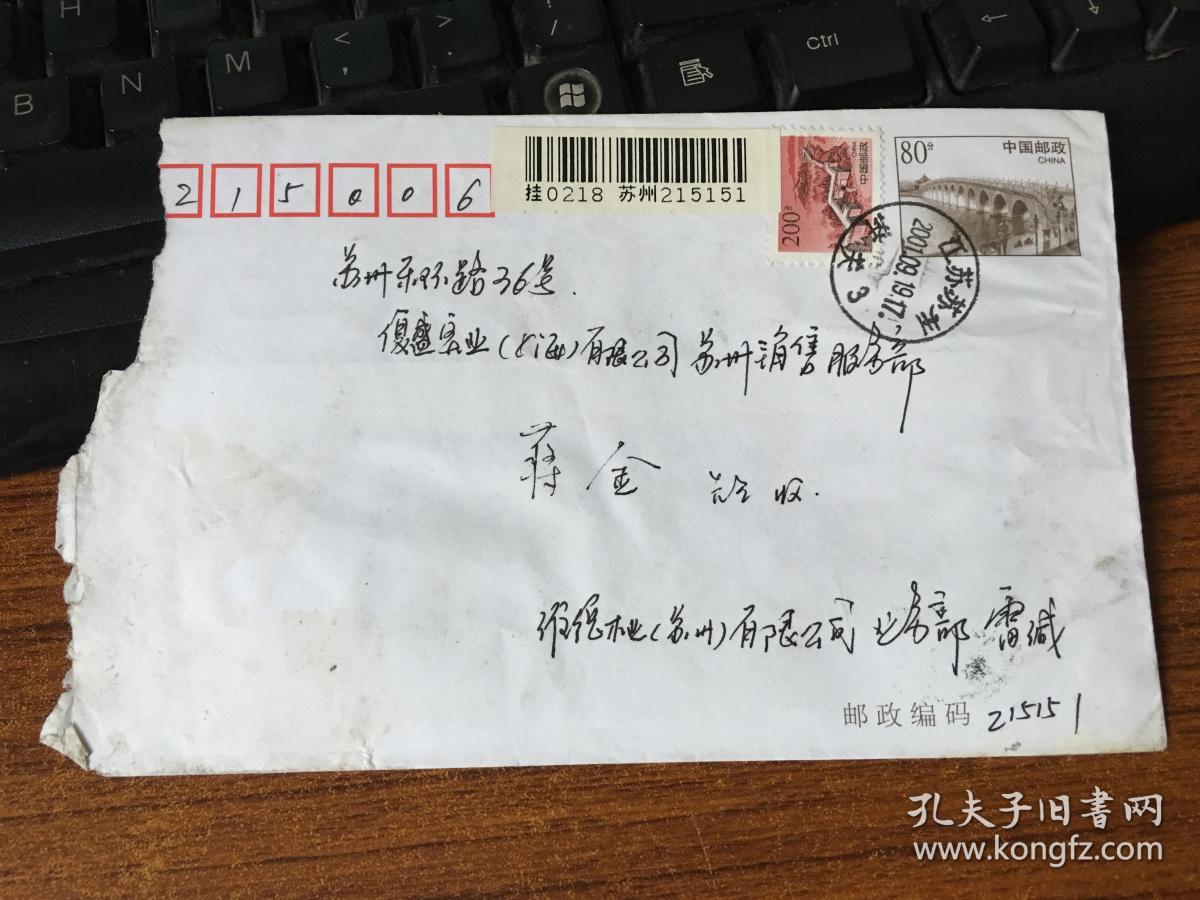 H
B
N
M
<
,
>
.
?
/
Ctrl
215006
挂0218 苏州215151
200分
中国邮政
CHINA
80分
中国邮政
CHINA
江苏苏州
2001.09.19.17
关 3
苏州东环路36号.
優盛实业(上海)有限公司苏州销售服务部
蒋金 收.
维德木业(苏州)有限公司业务部 雷缄
邮政编码 215151
孔夫子旧书网
www.kongfz.com